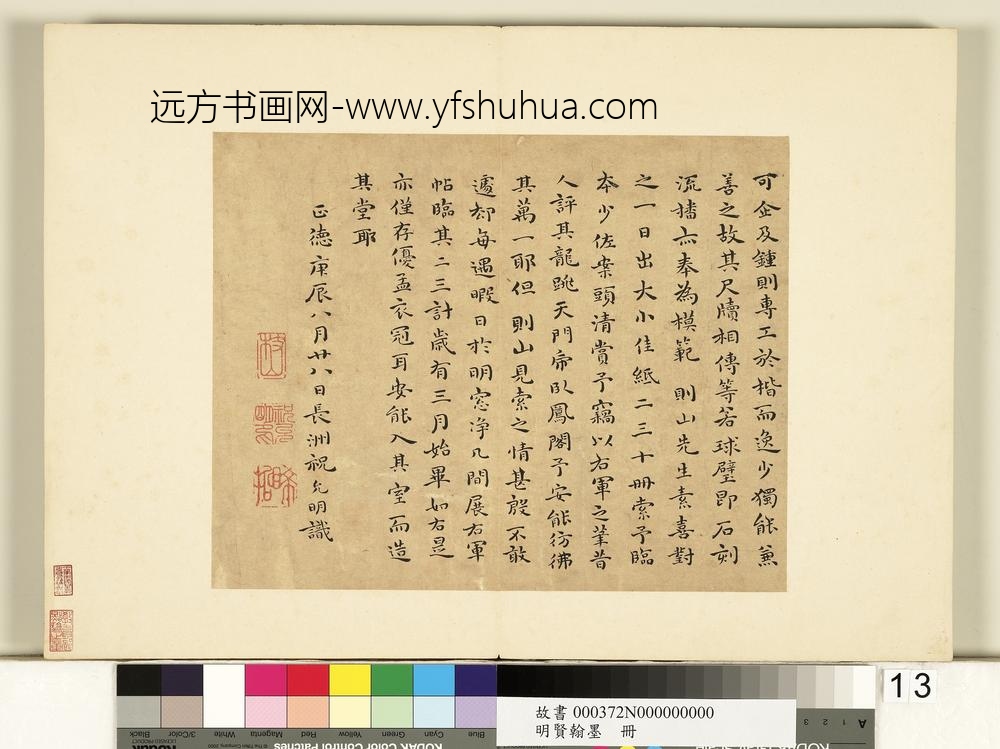 远方书画网-www.yfshuhua.com
可企及鍾則專工於楷而逸少獨能兼
善之故其尺牘相傳等若球璧即石刻
流播亦奉為模範 則山先生素喜對
之一日出大小佳紙二三十冊索予臨
本少佐案頭清賞予竊以右軍之筆昔
人評其龍跳天門帝臥鳳閣予安能彷彿
其萬一耶但 則山見索之情甚殷不敢
遽却每遇暇日於明窓净几間展右軍
帖臨其二三計歲有三月始畢如右是
亦僅存優孟衣冠耳安能入其室而造
其堂耶
正德庚辰八月廿八日長洲祝允明識
枝山
祝允明印
希哲
13
故書 000372N000000000
明賢翰墨 冊
Black
3/Color
White
Magenta
Red
Yellow
Green
Cyan
Blue
KODAK Color Control Patches
A 1 2 3